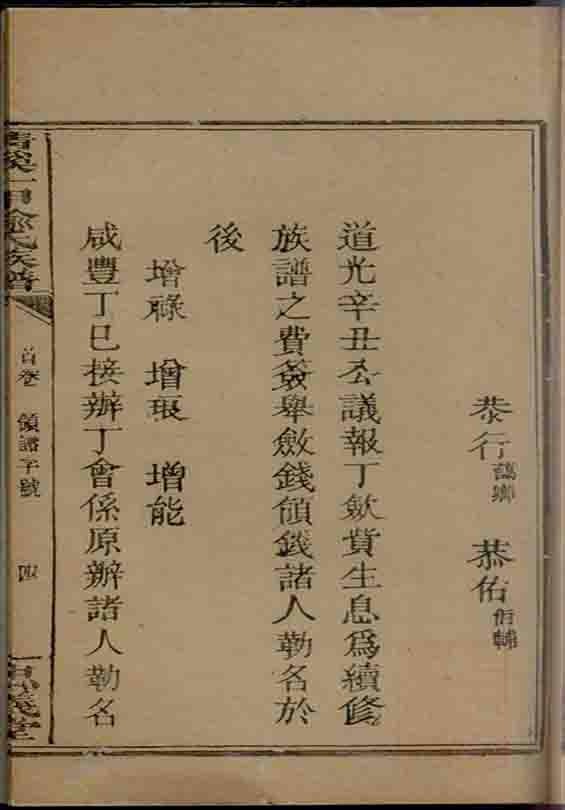 恭行 藹鄉 恭佑 佰輔
道光辛丑公議報丁斂貲生息爲續修
族譜之費簽舉斂錢領錢諸人勒名於
後
增祿 增琅 增能
咸豐丁巳接辦丁會係原辦諸人勒名
清溪一甲余氏族譜
首卷 領譜字號
四